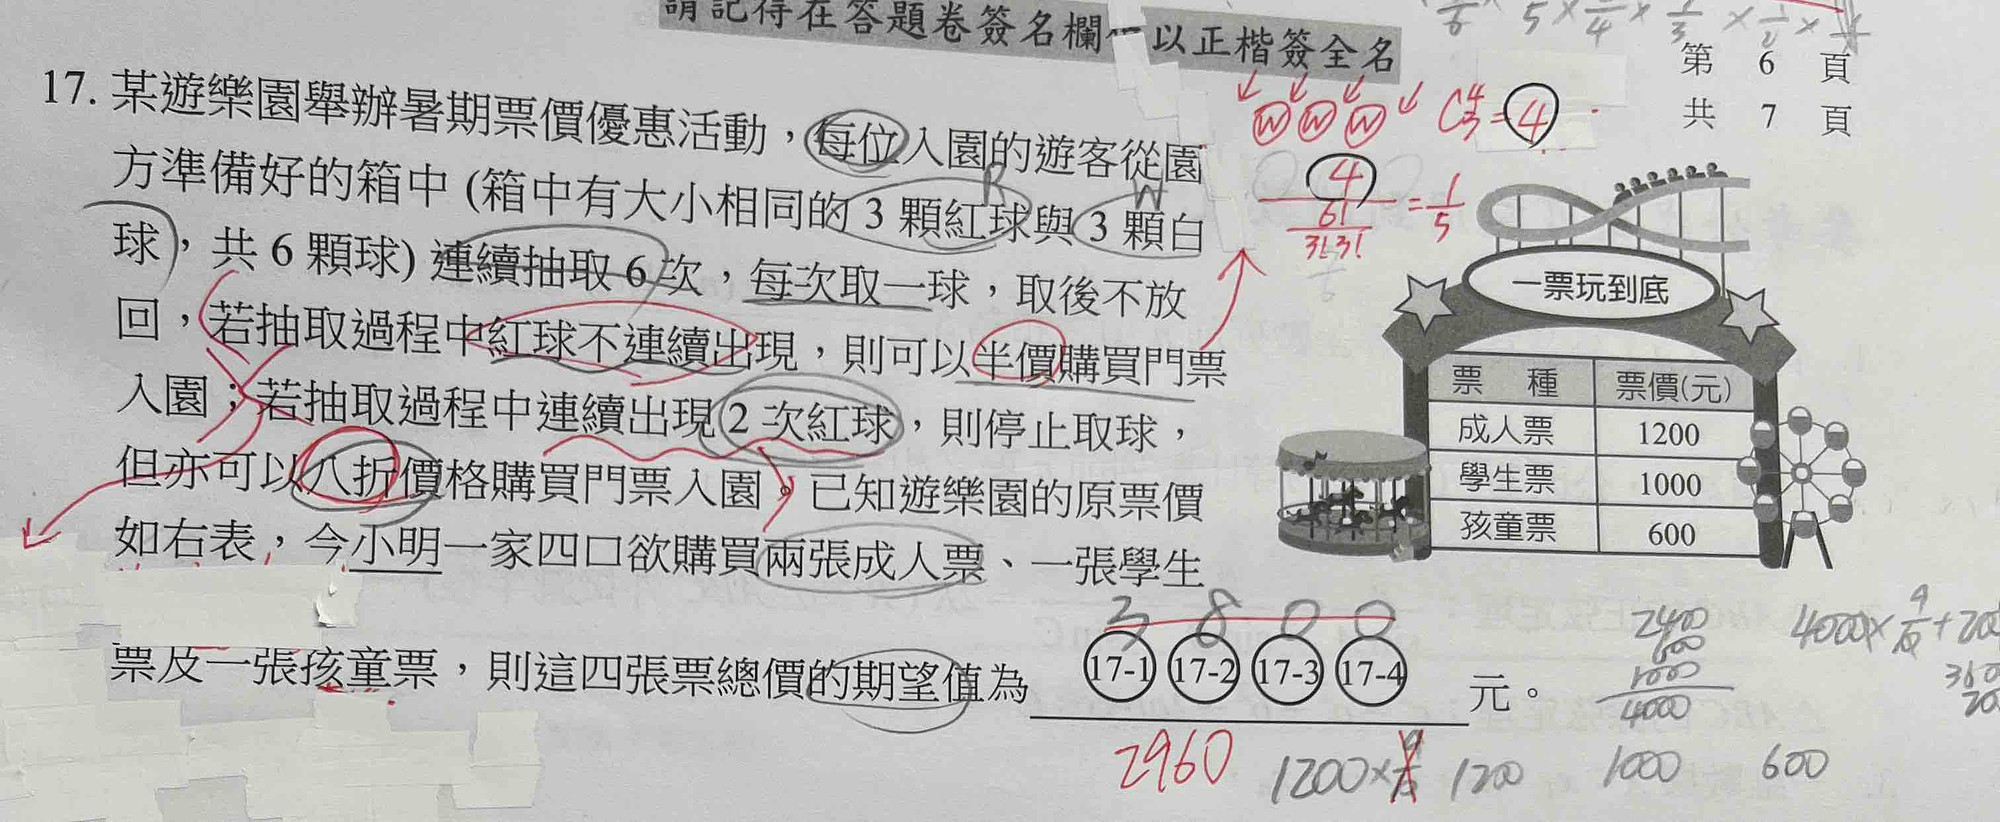 請記得在答題卷簽名欄 以正楷簽全名
第 6 頁
共 7 頁
17. 某遊樂園舉辦暑期票價優惠活動，每位入園的遊客從園
方準備好的箱中 (箱中有大小相同的 3 顆紅球與 3 顆白
球，共 6 顆球) 連續抽取 6 次，每次取一球，取後不放
回，若抽取過程中紅球不連續出現，則可以半價購買門票
入園；若抽取過程中連續出現 2 次紅球，則停止取球，
但亦可以八折價格購買門票入園。已知遊樂園的原票價
如右表，今小明一家四口欲購買兩張成人票、一張學生
票及一張孩童票，則這四張票總價的期望值為 17-1 17-2 17-3 17-4 元。
R
W
W W W C⁴₃ = 4
4
6!
3!3!
= 1/5
一票玩到底
票 種 票價(元)
成人票 1200
學生票 1000
孩童票 600
3 8 0 0
2960
2400
600
1000
4000
1200×
1200
1000
600